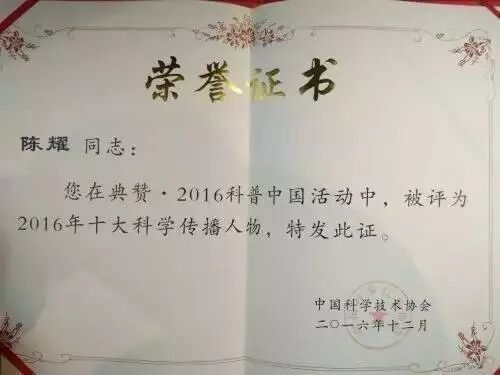 荣誉证书
陈耀 同志：
您在典赞·2016科普中国活动中，被评为
2016年十大科学传播人物，特发此证。
中国科学技术协会
二〇一六年十二月